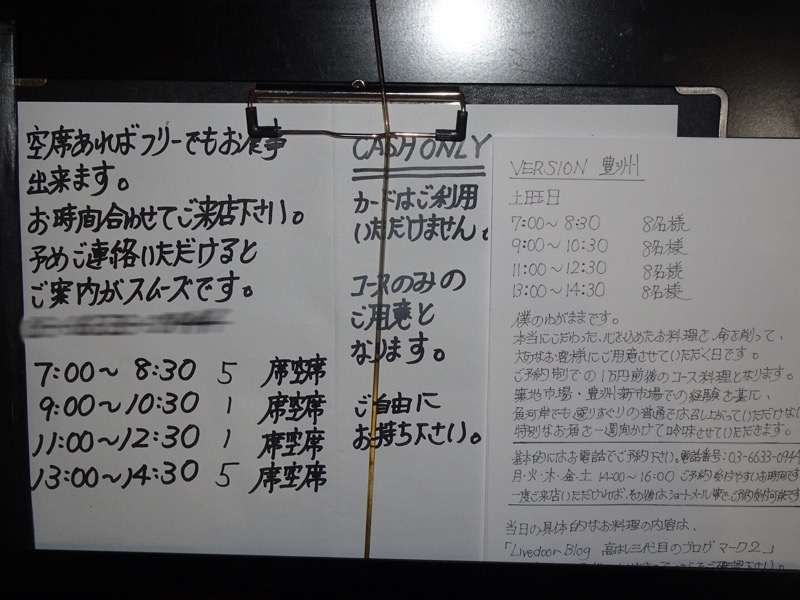 空席あればフリーでもお食事
出来ます。
お時間合わせてご来店下さい。
予めご連絡いただけると
ご案内がスムーズです。
7:00〜 8:30 5 席空席
9:00〜10:30 1 席空席
11:00〜12:30 1 席空席
13:00〜14:30 5 席空席
CASH ONLY
カードはご利用
いただけません。
コースのみの
ご用意と
なります。
ご自由に
お持ち下さい。
VERSION 豊洲
土曜日
7:00〜 8:30 8名様
9:00〜 10:30 8名様
11:00〜 12:30 8名様
13:00〜 14:30 8名様
僕のわがままです。
本当にこだわった、心を込めたお料理を、命を削って、
大切なお客様にご用意させていただく日です。
ご予約制での1万円前後のコース料理となります。
築地市場・豊洲新市場での経験を基に、
魚河岸でも選りすぐりの普通では召し上がっていただけない
特別なお魚を一週間かけて吟味させていただきます。
基本的にはお電話でご予約下さい。電話番号:03-6633-0944
月・火・木・金・土 14:00〜16:00 ご予約受付やすいお時間です
一度ご来店いただければ、その後はショートメール等でご予約受付可能です
当日の具体的なお料理の内容は、
「Livedoor Blog 高はし三代目のブログ マーク2」